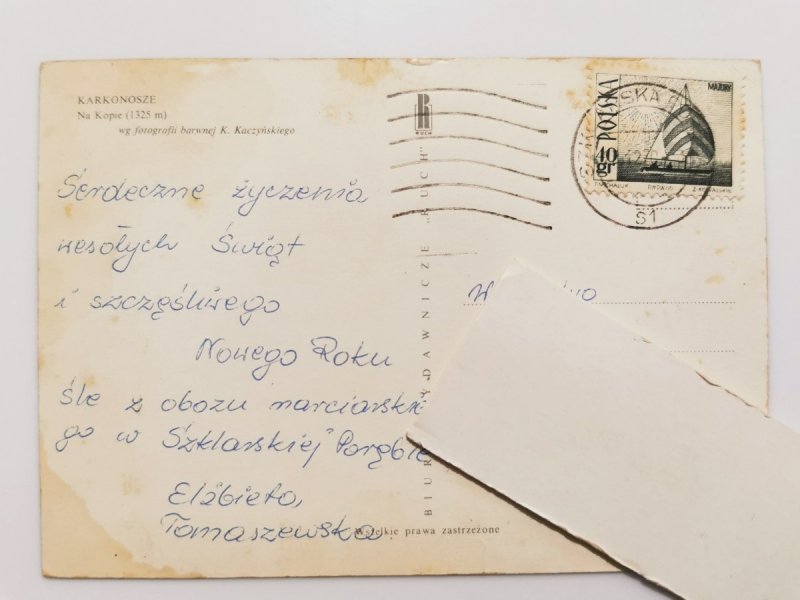 KARKONOSZE
Na Kopie (1325 m)
wg fotografii barwnej K. Kaczyńskiego
Serdeczne życzenia
wesołych Świąt
i szczęśliwego
Nowego Roku
śle z obozu narciarskie
go w Szklarskiej Porębie
Elżbieta
Tomaszewska
Wszelkie prawa zastrzeżone
RUCH
DAWNICZE „RUCH"
BIUR
POLSKA
MAZURY
40 gr
SKA
S1